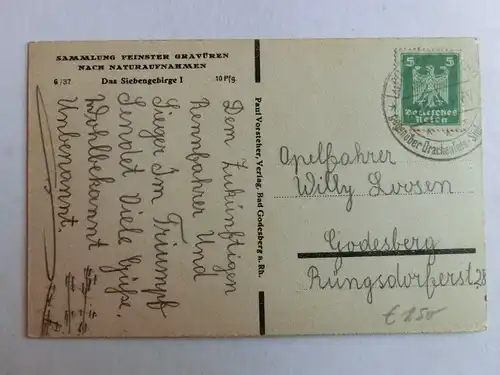 SAMMLUNG FEINSTER GRAVÜREN
NACH NATURAUFNAHMEN
6/37 Das Siebengebirge I 10 Pfg
Dem Zukünftigen
Rennfahrer Und
Sieger Im Triumpf
Sendet Viele Grüße.
Wohlbekannt
Unbenannt.
Paul Vorsteher, Verlag, Bad Godesberg a. Rh.
5 5
Deutsches
Reich
Opelfahrer
Willy Loosen
Godesberg
Rüngsdorferst. 28
€ 2.50